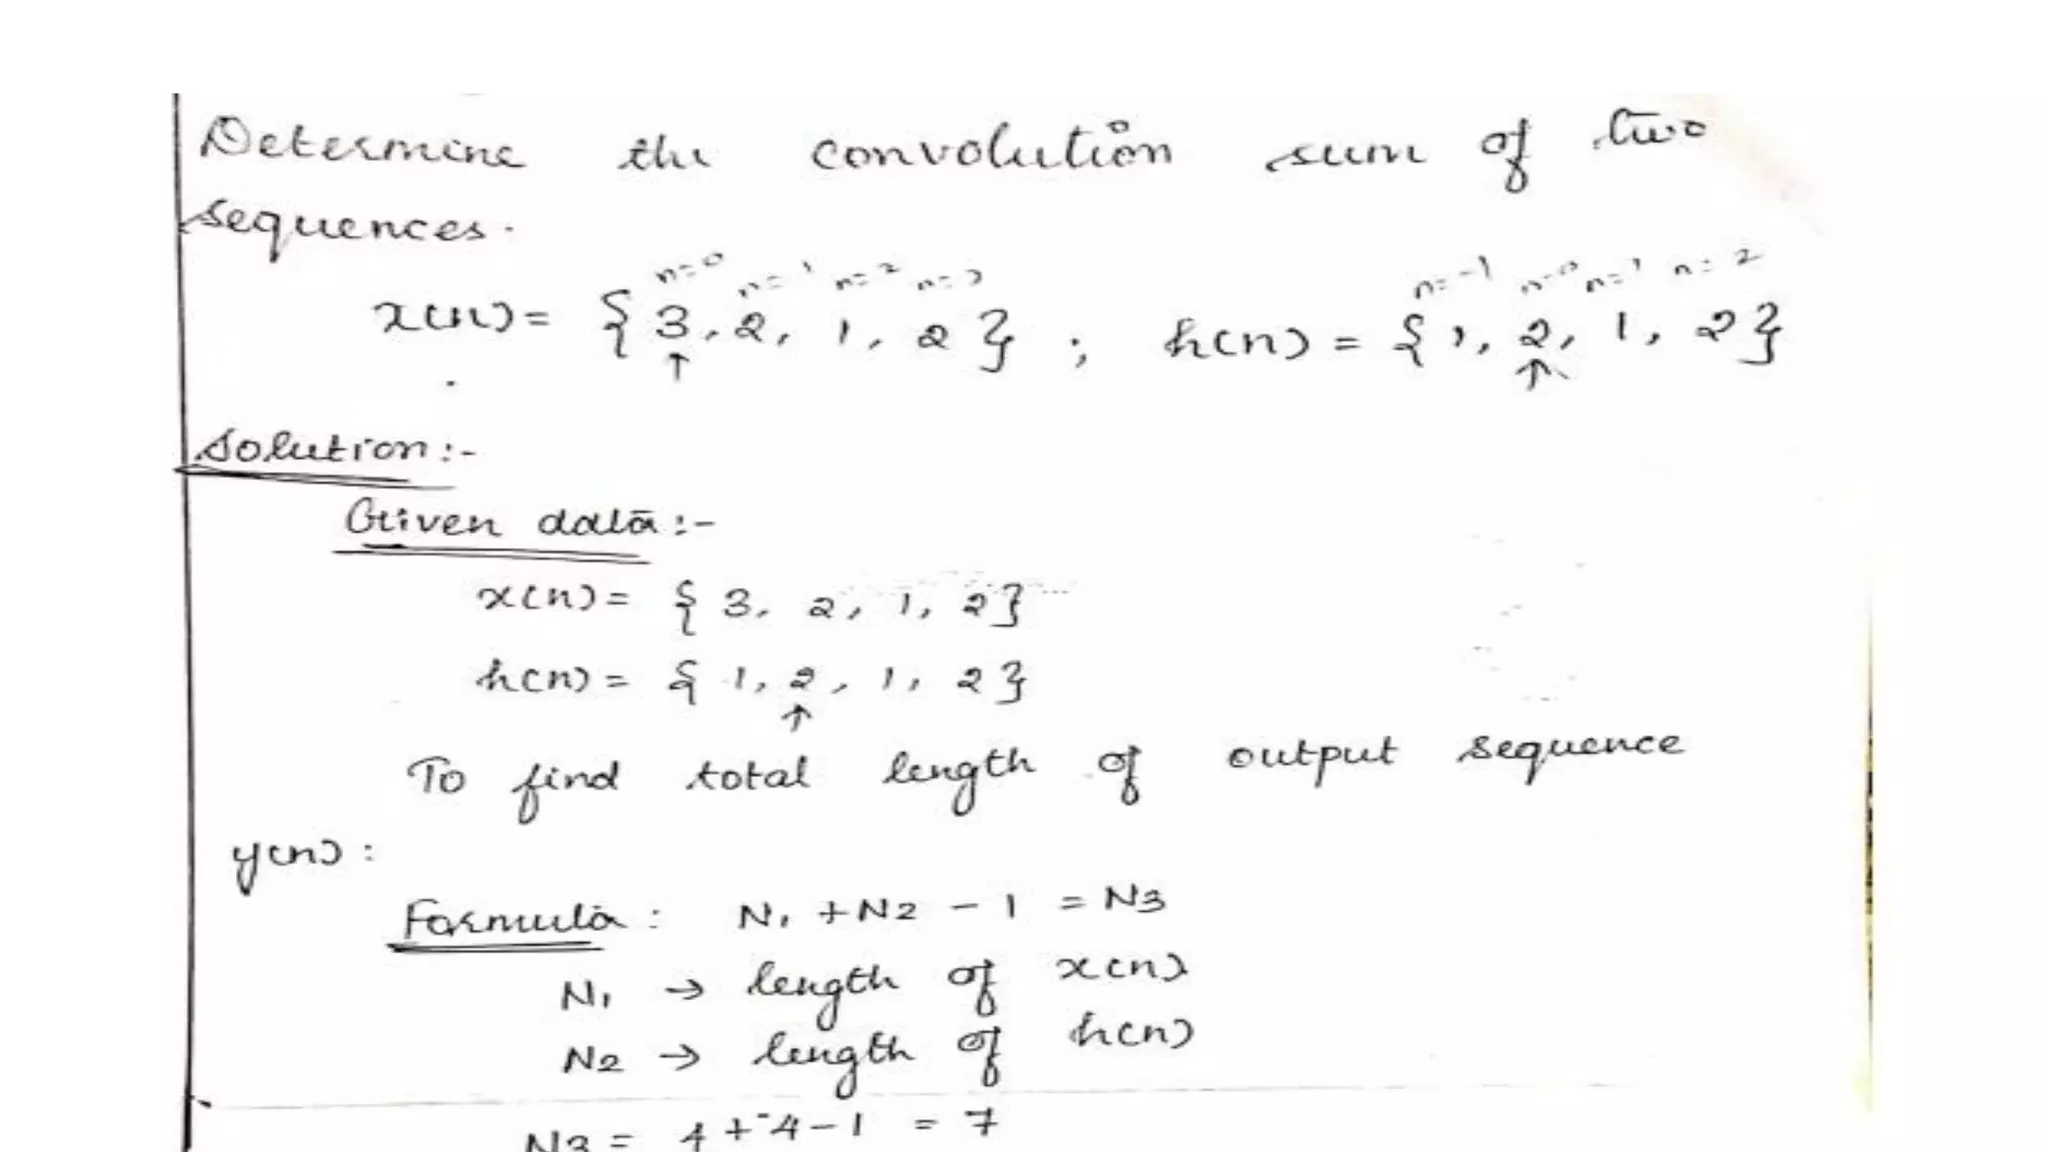 Determine the convolution sum of two
sequences.
n=0 n=1 n=2 n=3 n=-1 n=0 n=1 n=2
x(n) = {3, 2, 1, 2} ; h(n) = {1, 2, 1, 2}
↑ ↑
Solution:-
Given data:-
x(n) = {3, 2, 1, 2}
h(n) = {1, 2, 1, 2}
↑
To find total length of output sequence
y(n):
Formula: N1 + N2 - 1 = N3
N1 → length of x(n)
N2 → length of h(n)
N3 = 4+4-1 = 7